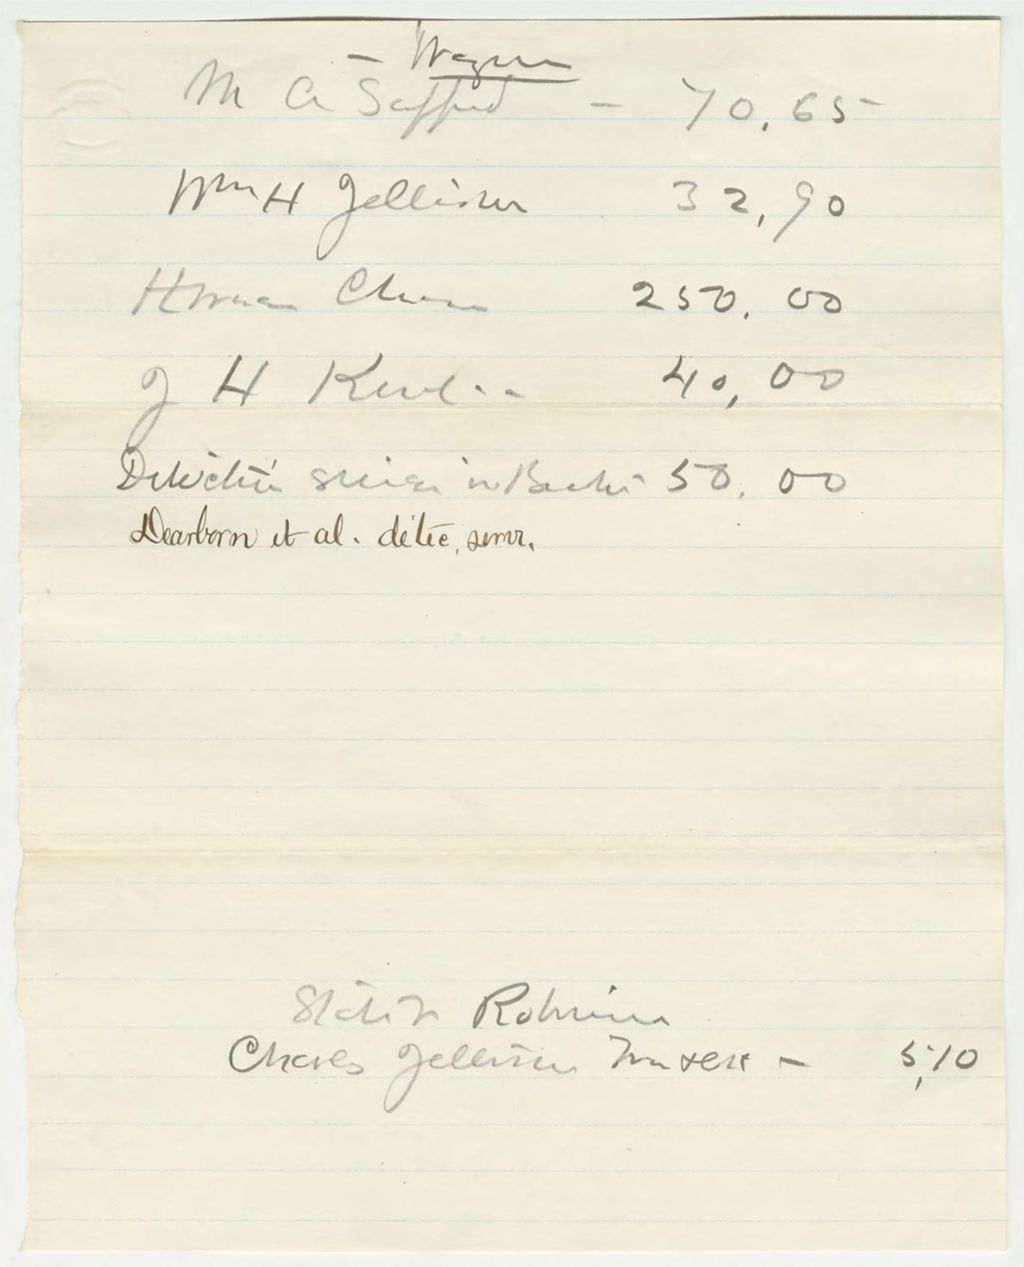 - Wagner
M A Safford - 70,65
Wm H Jellison 32,90
Hiram Chase 250.00
J H 40,00
Detective service in Boston 50.00
Dearborn et al. detec, servr.
State v Robinson
Charles Jellison - 5,10